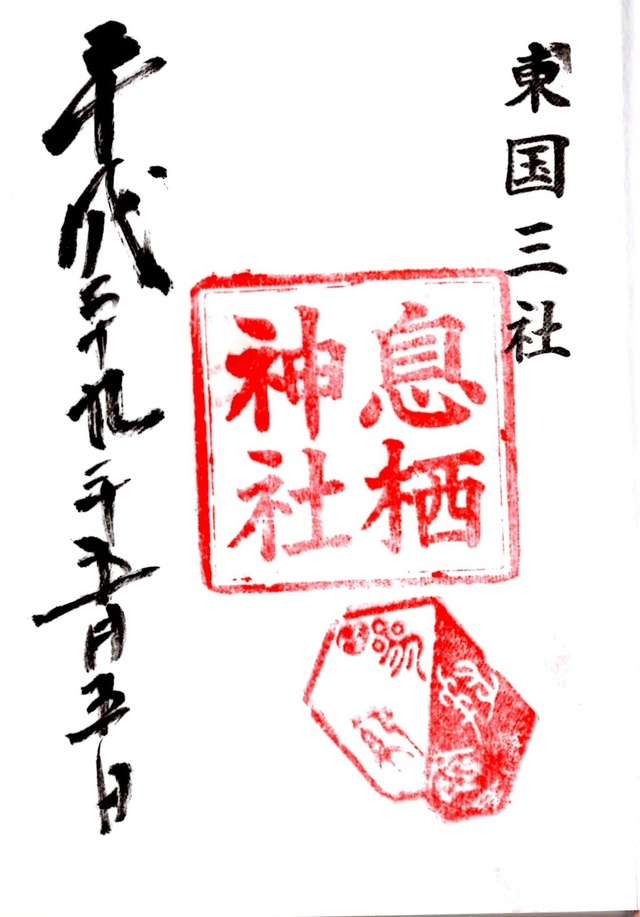 東国三社
息栖
神社
平成二十九年五月五日